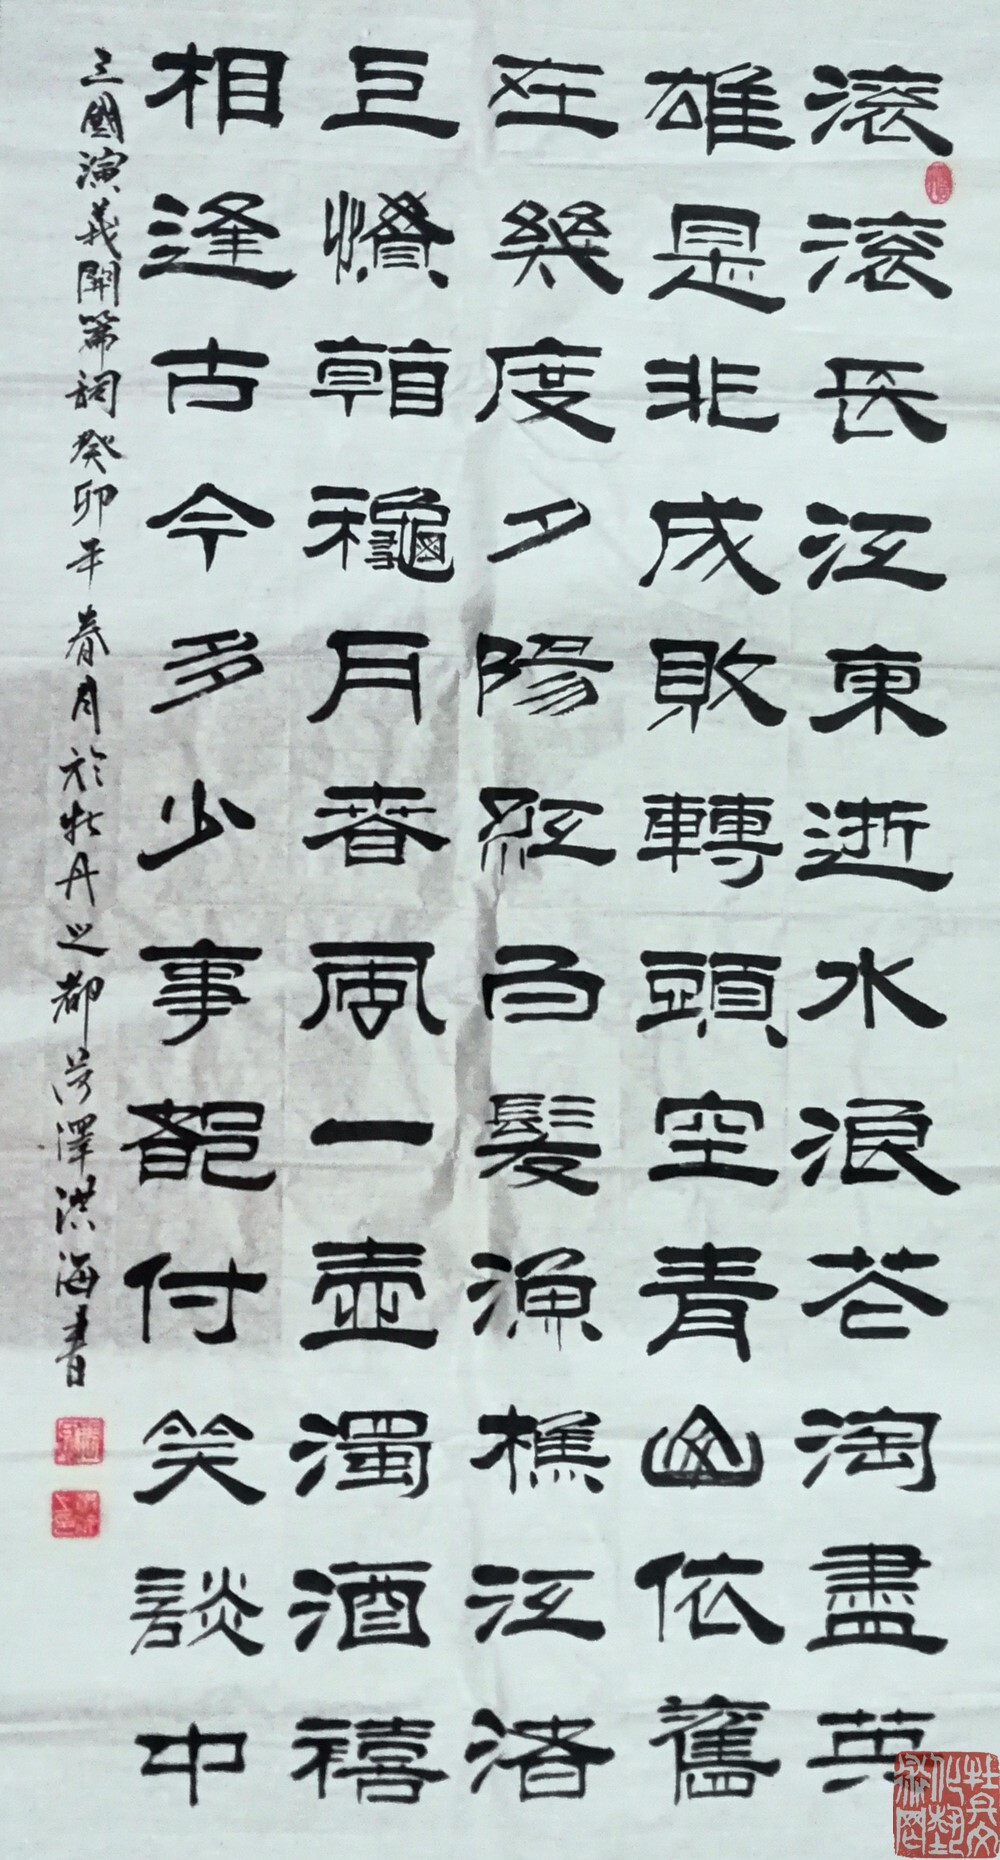 滚滚長江東逝水浪花淘盡英
雄是非成敗轉頭空青山依舊
在幾度夕陽紅白髮漁樵江渚
上慣看龝月春風一壺濁酒禧
相逢古今多少事都付笑談中
三國演義開篇詞癸卯年春月於牡丹之都菏澤洪海書
牡丹文化藝術网